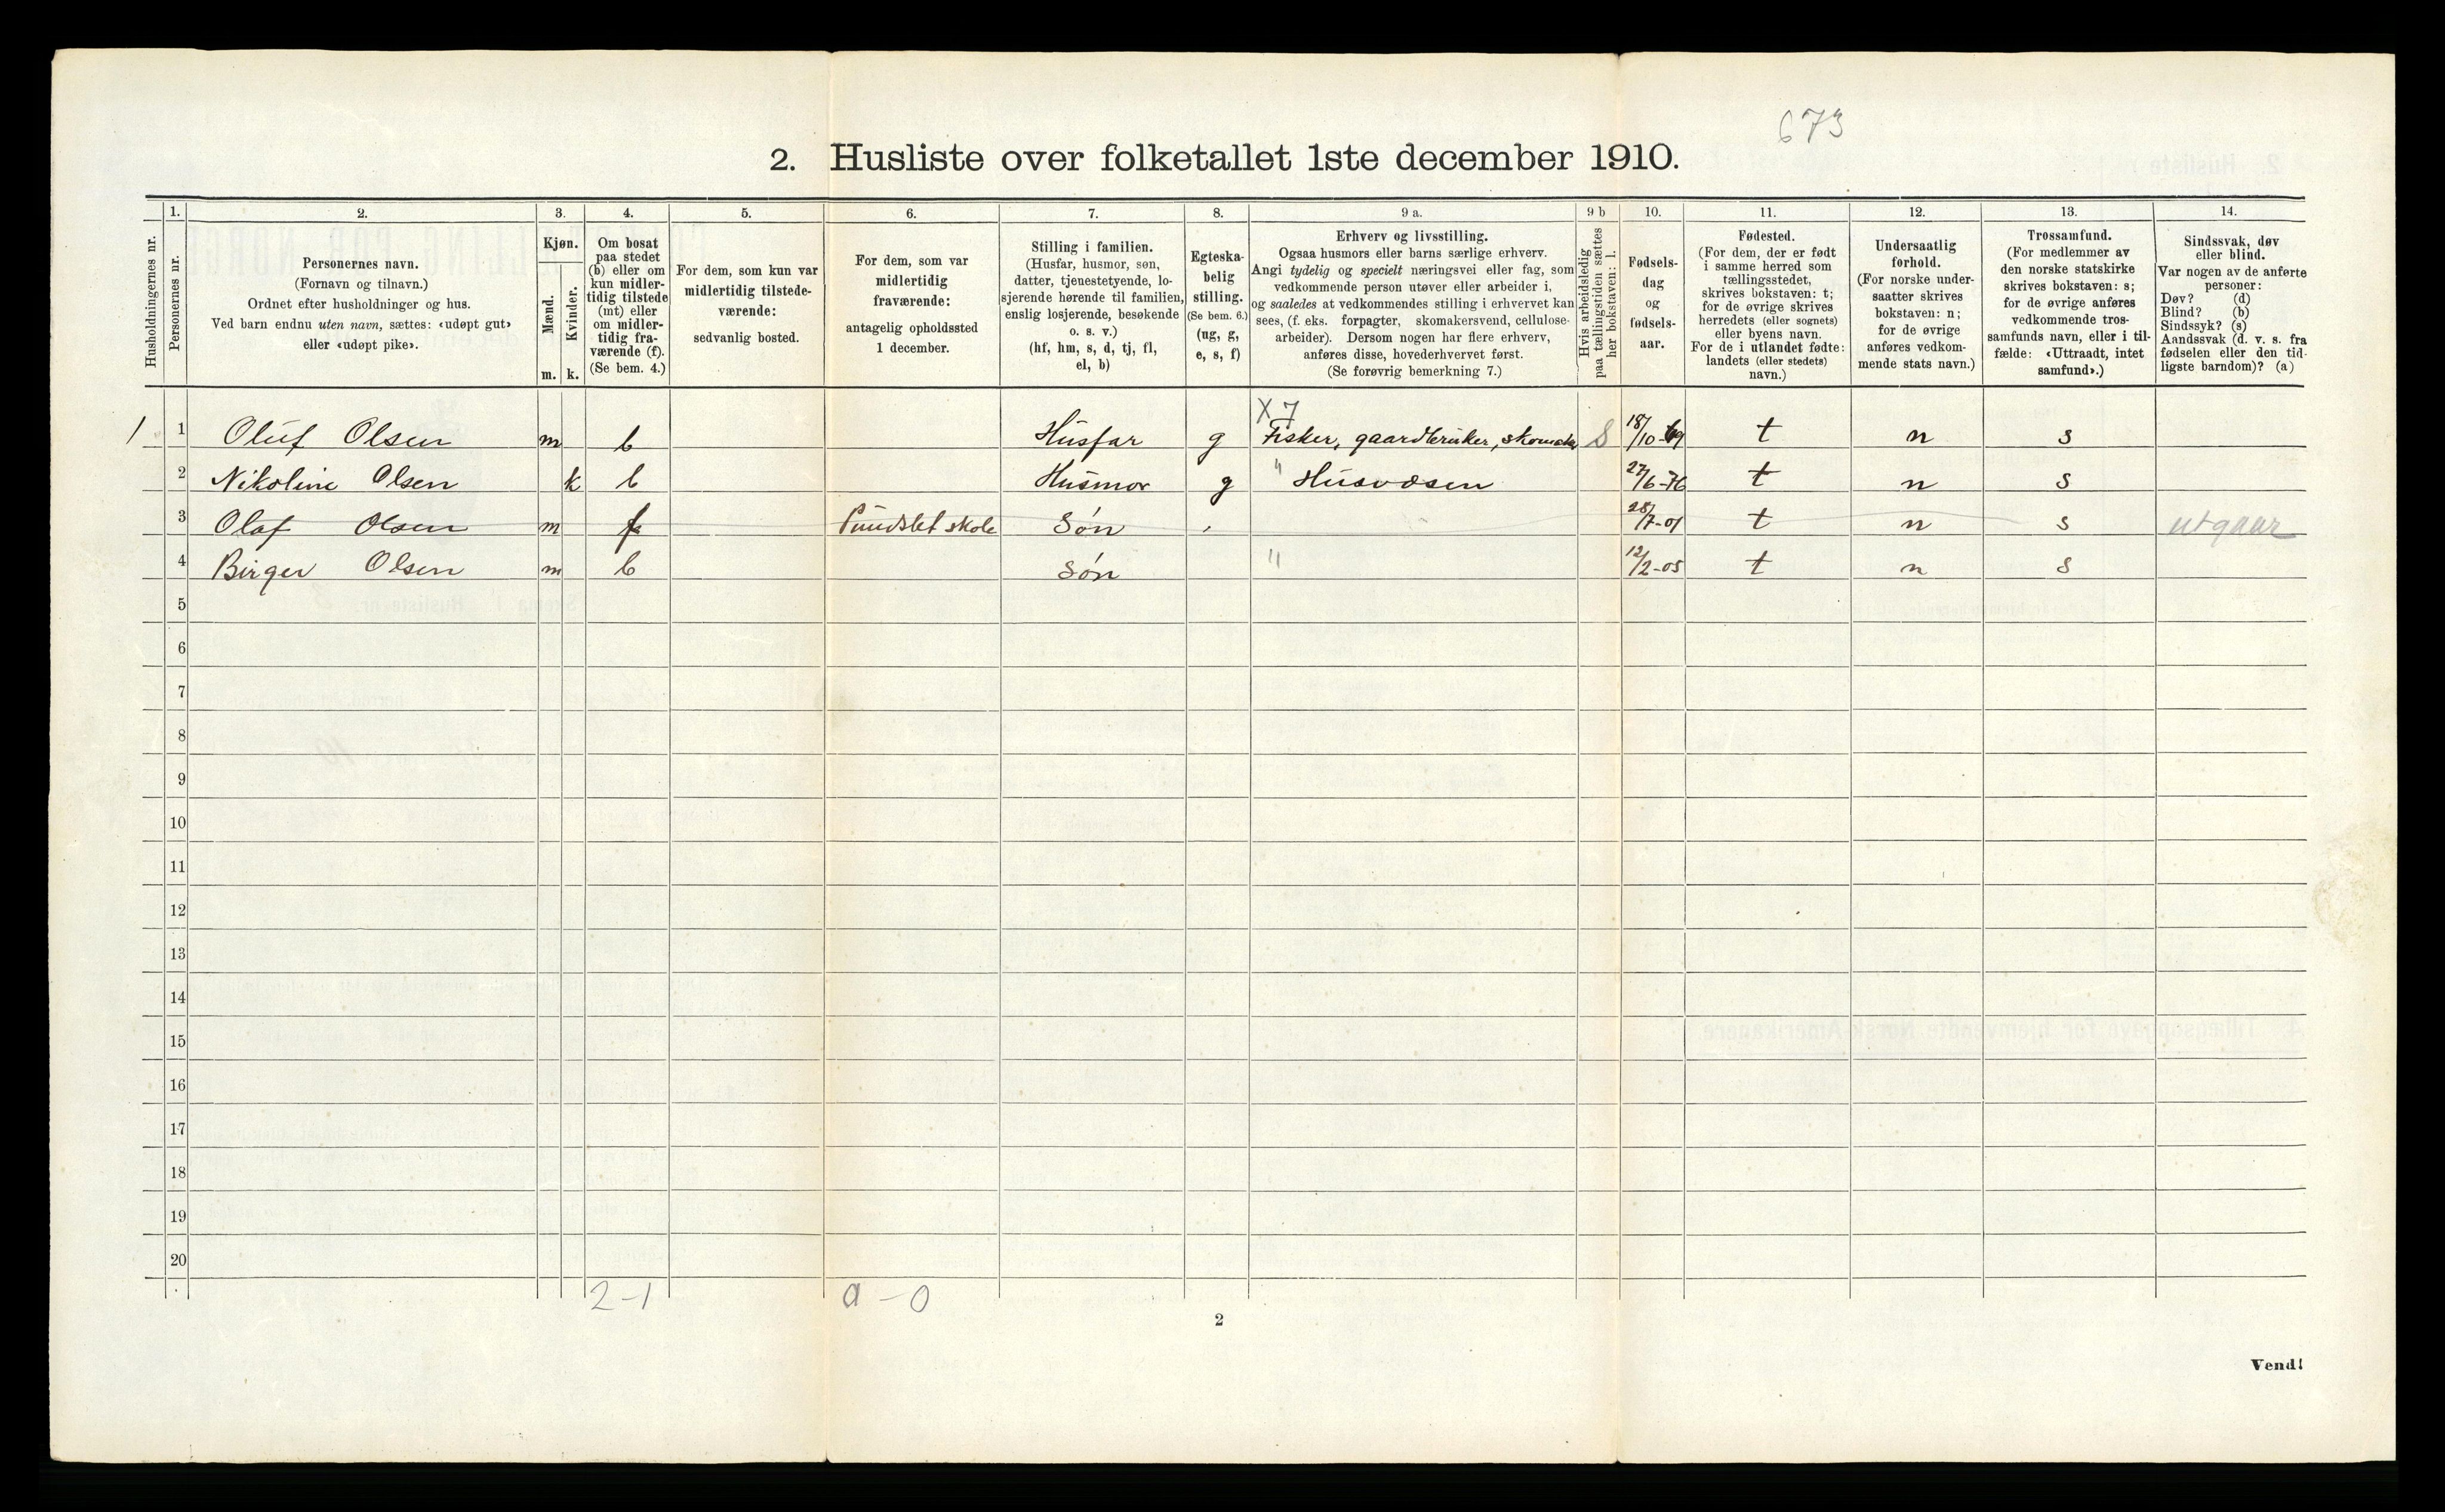 673
2. Husliste over folketallet 1ste december 1910.
Husholdningernes nr.
1.
Personernes nr.
2.
Personernes navn.
(Fornavn og tilnavn.)
Ordnet efter husholdninger og hus.
Ved barn endnu uten navn, sættes: «udøpt gut»
eller «udøpt pike».
3.
Kjøn.
Mænd.
Kvinder.
m. k.
4.
Om bosat
paa stedet
(b) eller om
kun midler-
tidig tilstede
(mt) eller
om midler-
tidig fra-
værende (f).
(Se bem. 4.)
5.
For dem, som kun var
midlertidig tilstede-
værende:
sedvanlig bosted.
6.
For dem, som var
midlertidig
fraværende:
antagelig opholdssted
1 december.
7.
Stilling i familien.
(Husfar, husmor, søn,
datter, tjenestetyende, lo-
sjerende hørende til familien,
enslig losjerende, besøkende
o. s. v.)
(hf, hm, s, d, tj, fl,
el, b)
8.
Egteska-
belig
stilling.
(Se bem. 6.)
(ug, g,
e, s, f)
9 a.
Erhverv og livsstilling.
Ogsaa husmors eller barns særlige erhverv.
Angi tydelig og specielt næringsvei eller fag, som
vedkommende person utøver eller arbeider i,
og saaledes at vedkommendes stilling i erhvervet kan
sees, (f. eks. forpagter, skomakersvend, cellulose-
arbeider). Dersom nogen har flere erhverv,
anføres disse, hovederhvervet først.
(Se forøvrig bemerkning 7.)
9 b
Hvis arbeidsledig
paa tællingstiden sættes
her bokstaven: l.
10.
Fødsels-
dag
og
fødsels-
aar.
11.
Fødested.
(For dem, der er født
i samme herred som
tællingsstedet,
skrives bokstaven: t;
for de øvrige skrives
herredets (eller sognets)
eller byens navn.
For de i utlandet fødte:
landets (eller stedets)
navn.)
12.
Undersaatlig
forhold.
(For norske under-
saatter skrives
bokstaven: n;
for de øvrige
anføres vedkom-
mende stats navn.)
13.
Trossamfund.
(For medlemmer av
den norske statskirke
skrives bokstaven: s;
for de øvrige anføres
vedkommende tros-
samfunds navn, eller i til-
fælde: «Uttraadt, intet
samfund».)
14.
Sindssvak, døv
eller blind.
Var nogen av de anførte
personer:
Døv? (d)
Blind? (b)
Sindssyk? (s)
Aandssvak (d. v. s. fra
fødselen eller den tid-
ligste barndom)? (a)
X 7
1 1 Oluf Olsen m b Husfar g Fisker, gaardbruker, skomaker S 18/10-69 t n s
2 Nikoline Olsen k b Husmor g " Husvæsen 27/6-76 t n s
3 Olaf Olsen m f Pundslet skole Søn 28/7-01 t n s utgaar
4 Birger Olsen m b Søn " 12/2-05 t n s
5
6
7
8
9
10
11
12
13
14
15
16
17
18
19
20
2-1 a-0
2
Vend!